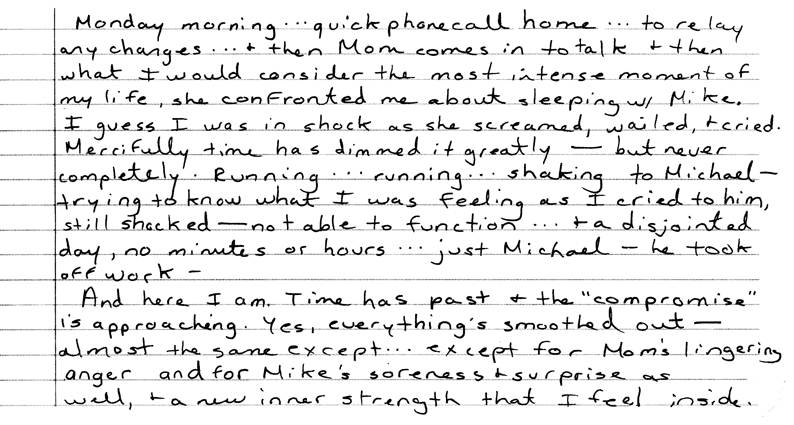 Monday morning ... quick phonecall home ... to relay
any changes ... + then Mom comes in to talk + then
what I would consider the most intense moment of
my life, she confronted me about sleeping w/ Mike.
I guess I was in shock as she screamed, wailed, + cried.
Mercifully time has dimmed it greatly — but never
completely. Running ... running ... shaking to Michael —
trying to know what I was feeling as I cried to him,
still shocked — not able to function ... + a disjointed
day, no minutes or hours ... just Michael — he took
off work —
And here I am. Time has past + the "compromise"
is approaching. Yes, everything's smoothed out —
almost the same except ... except for Mom's lingering
anger and for Mike's soreness + surprise as
well, + a new inner strength that I feel inside.